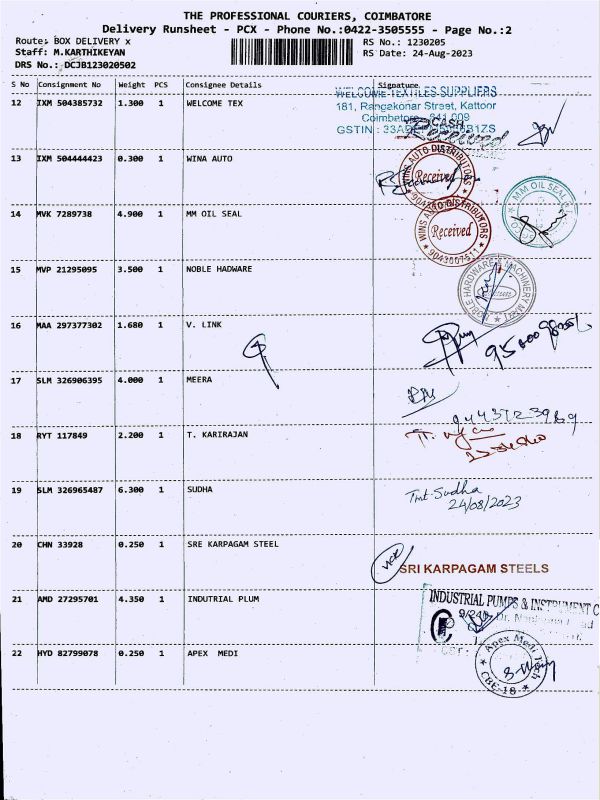 THE PROFESSIONAL COURIERS, COIMBATORE
Delivery Runsheet - PCX - Phone No.:0422-3505555 - Page No.:2
Route: BOX DELIVERY x
RS No.: 1230205
Staff: M.KARTHIKEYAN
RS Date: 24-Aug-2023
DRS No.: DCJB123020502
S No Consignment No Weight PCS Consignee Details Signature
12 IXM 504385732 1.300 1 WELCOME TEX
WELCOME TEXTILES SUPPLIERS
181, Rangakonar Street, Kattoor
Coimbatore - 641 009
GSTIN : 33A
1ZS
CASH
Received
13 IXM 504444423 0.300 1 WINA AUTO
WINS AUTO DISTRIBUTORS
Received
14 MVK 7289738 4.900 1 MM OIL SEAL
WINS AUTO DISTRIBUTORS
Received
9043007511
MM OIL SEAL
15 MVP 21295095 3.500 1 NOBLE HADWARE
NOBLE HARDWARE & MACHINERY MART
16 MAA 297377302 1.680 1 V. LINK
17 SLM 326906395 4.000 1 MEERA
18 RYT 117849 2.200 1 T. KARIRAJAN
19 SLM 326965487 6.300 1 SUDHA
Tmt. Sudha
24/08/2023
20 CHN 33928 0.250 1 SRE KARPAGAM STEEL
SRI KARPAGAM STEELS
21 AMD 27295701 4.350 1 INDUTRIAL PLUM
INDUSTRIAL PUMPS & INSTRUMENT C
22 HYD 82799078 0.250 1 APEX MEDI
Apex Medi Tech
CBE-18